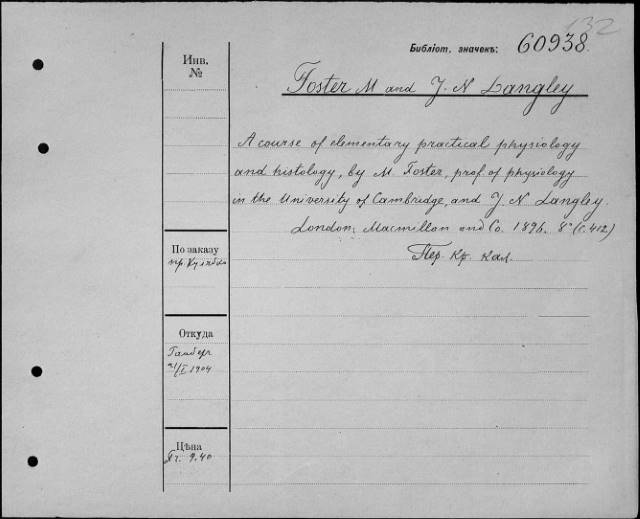 132
Библіот. значекъ: 60938.
Инв.
№
Foster M and J. N Langley
A course of elementary practical physiology
and histology, by M. Foster, prof. of physiology
in the University of Cambridge, and J. N Langley.
London, Macmillan and Co. 1896. 8° (c. 412)
Пер. Кр. кал.
По заказу
пр.
Откуда
1904
Цѣна
9.40